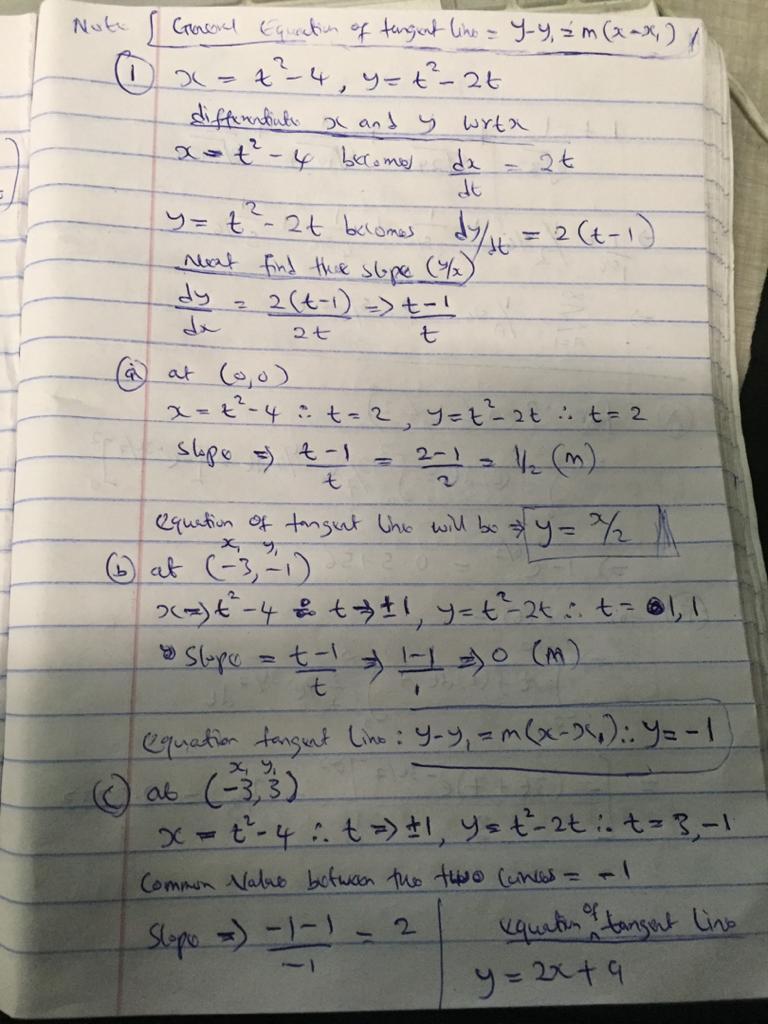 Note [ General Equation of tangent line = y-y₁ = m(x-x₁)
① x = t²-4, y = t²-2t
differentiate x and y wrtx
x = t²-4 becomes dx/dt = 2t
y = t²-2t becomes dy/dt = 2(t-1)
Next find the slope (y/x)
dy/dx = 2(t-1)/2t => t-1/t
ⓐ at (0,0)
x = t²-4 ∴ t=2, y=t²-2t ∴ t=2
Slope => t-1/t = 2-1/2 = 1/2 (m)
equation of tangent line will be => y = x/2
x₁ y₁
ⓑ at (-3,-1)
x=>t²-4 ∴ t=>±1, y=t²-2t ∴ t= 1,1
Slope = t-1/t => 1-1/1 => 0 (m)
equation tangent line: y-y₁=m(x-x₁) ∴ y=-1
x₁ y₁
ⓒ at (-3,3)
x = t²-4 ∴ t=>±1, y=t²-2t ∴ t=3,-1
Common Value between the two curves = -1
Slope => -1-1/-1 = 2
equation of tangent line
y = 2x+9